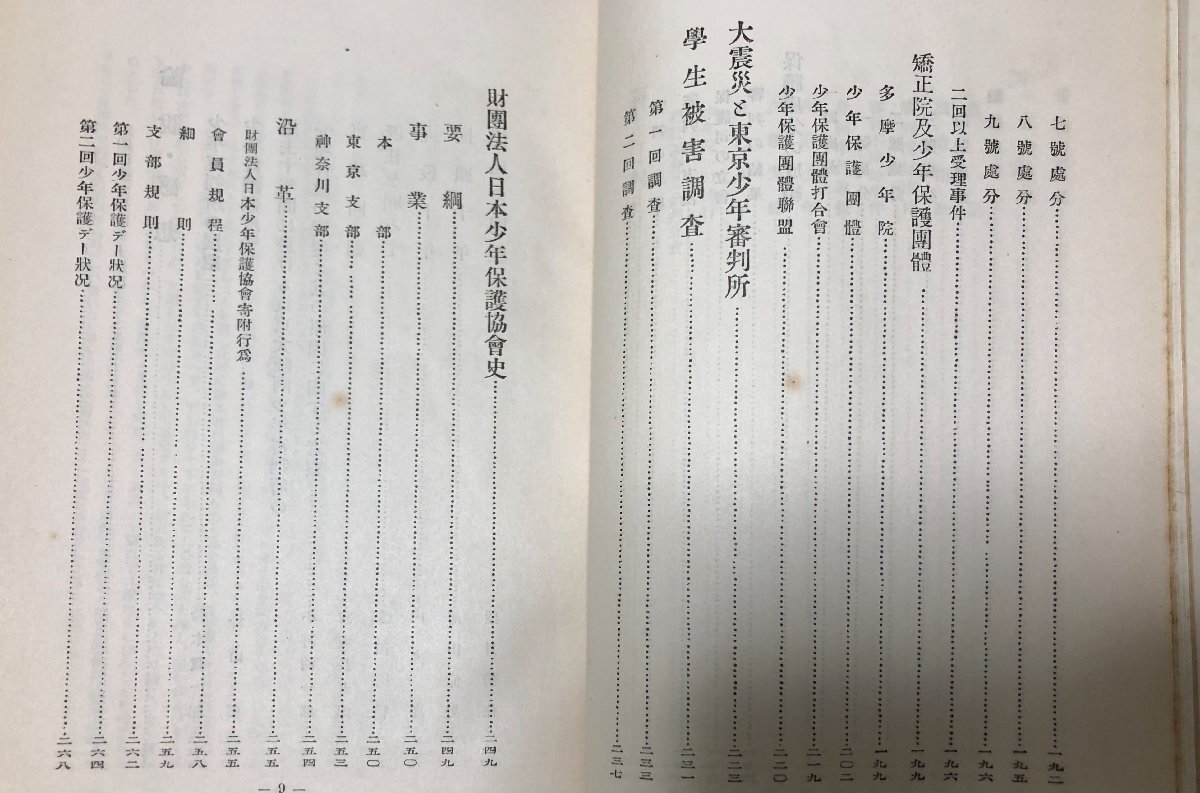 七號處分……一九二
八號處分……一九五
九號處分……一九六
二回以上受理事件……一九六
矯正院及少年保護團體……一九九
多摩少年院……一九九
少年保護團體……二〇二
少年保護團體打合會……二一九
少年保護團體聯盟……二二〇
大震災と東京少年審判所……二二三
學生被害調査……二三一
第一回調査……二三三
第二回調査……二三七
財團法人日本少年保護協會史……二四九
要綱……二四九
事業……二五〇
本部……二五〇
東京支部……二五三
神奈川支部……二五四
沿革……二五五
財團法人日本少年保護協會寄附行爲……二五五
會員規程……二五八
細則……二五九
支部規則……二六二
第一回少年保護デー狀況……二六四
第二回少年保護デー狀况……二六八
— 9 —